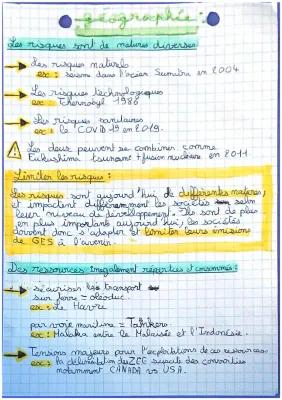 géographie:
Les risques sont de natures diverses
→ des risques naturels
ex: séisme dans l'océan Sumatra en 2004
→ Les risques technologiques
ex: Tchernobyl 1986
→ Les risques sanitaires
ex: le COVID 19 en 2019.
⚠ Les deux peuvent se combiner comme
Fukushima tsunami + fusion nucléaire en 2011
Limiter les risques:
Les risques sont aujourd'hui de différentes natures,
et impactent différemment les sociétés selon
leur niveau de développement. Ils sont de plus
en plus importants aujourd'hui, les sociétés
doivent donc s'adapter et limiter leurs émissions
de GES à l'avenir.
Des ressources inégalement réparties et consommées:
→ sécuriser les transport
sur terre = oléoduc.
ex: Le Havre
par voie maritime = Tankers.
ex: Malaka entre la Malaisie et l'Indonésie.
→ Tensions majeures pour l'exploitations de ces ressources
ex: la délimitation des ZEE des convoities
notamment CANADA vs USA.